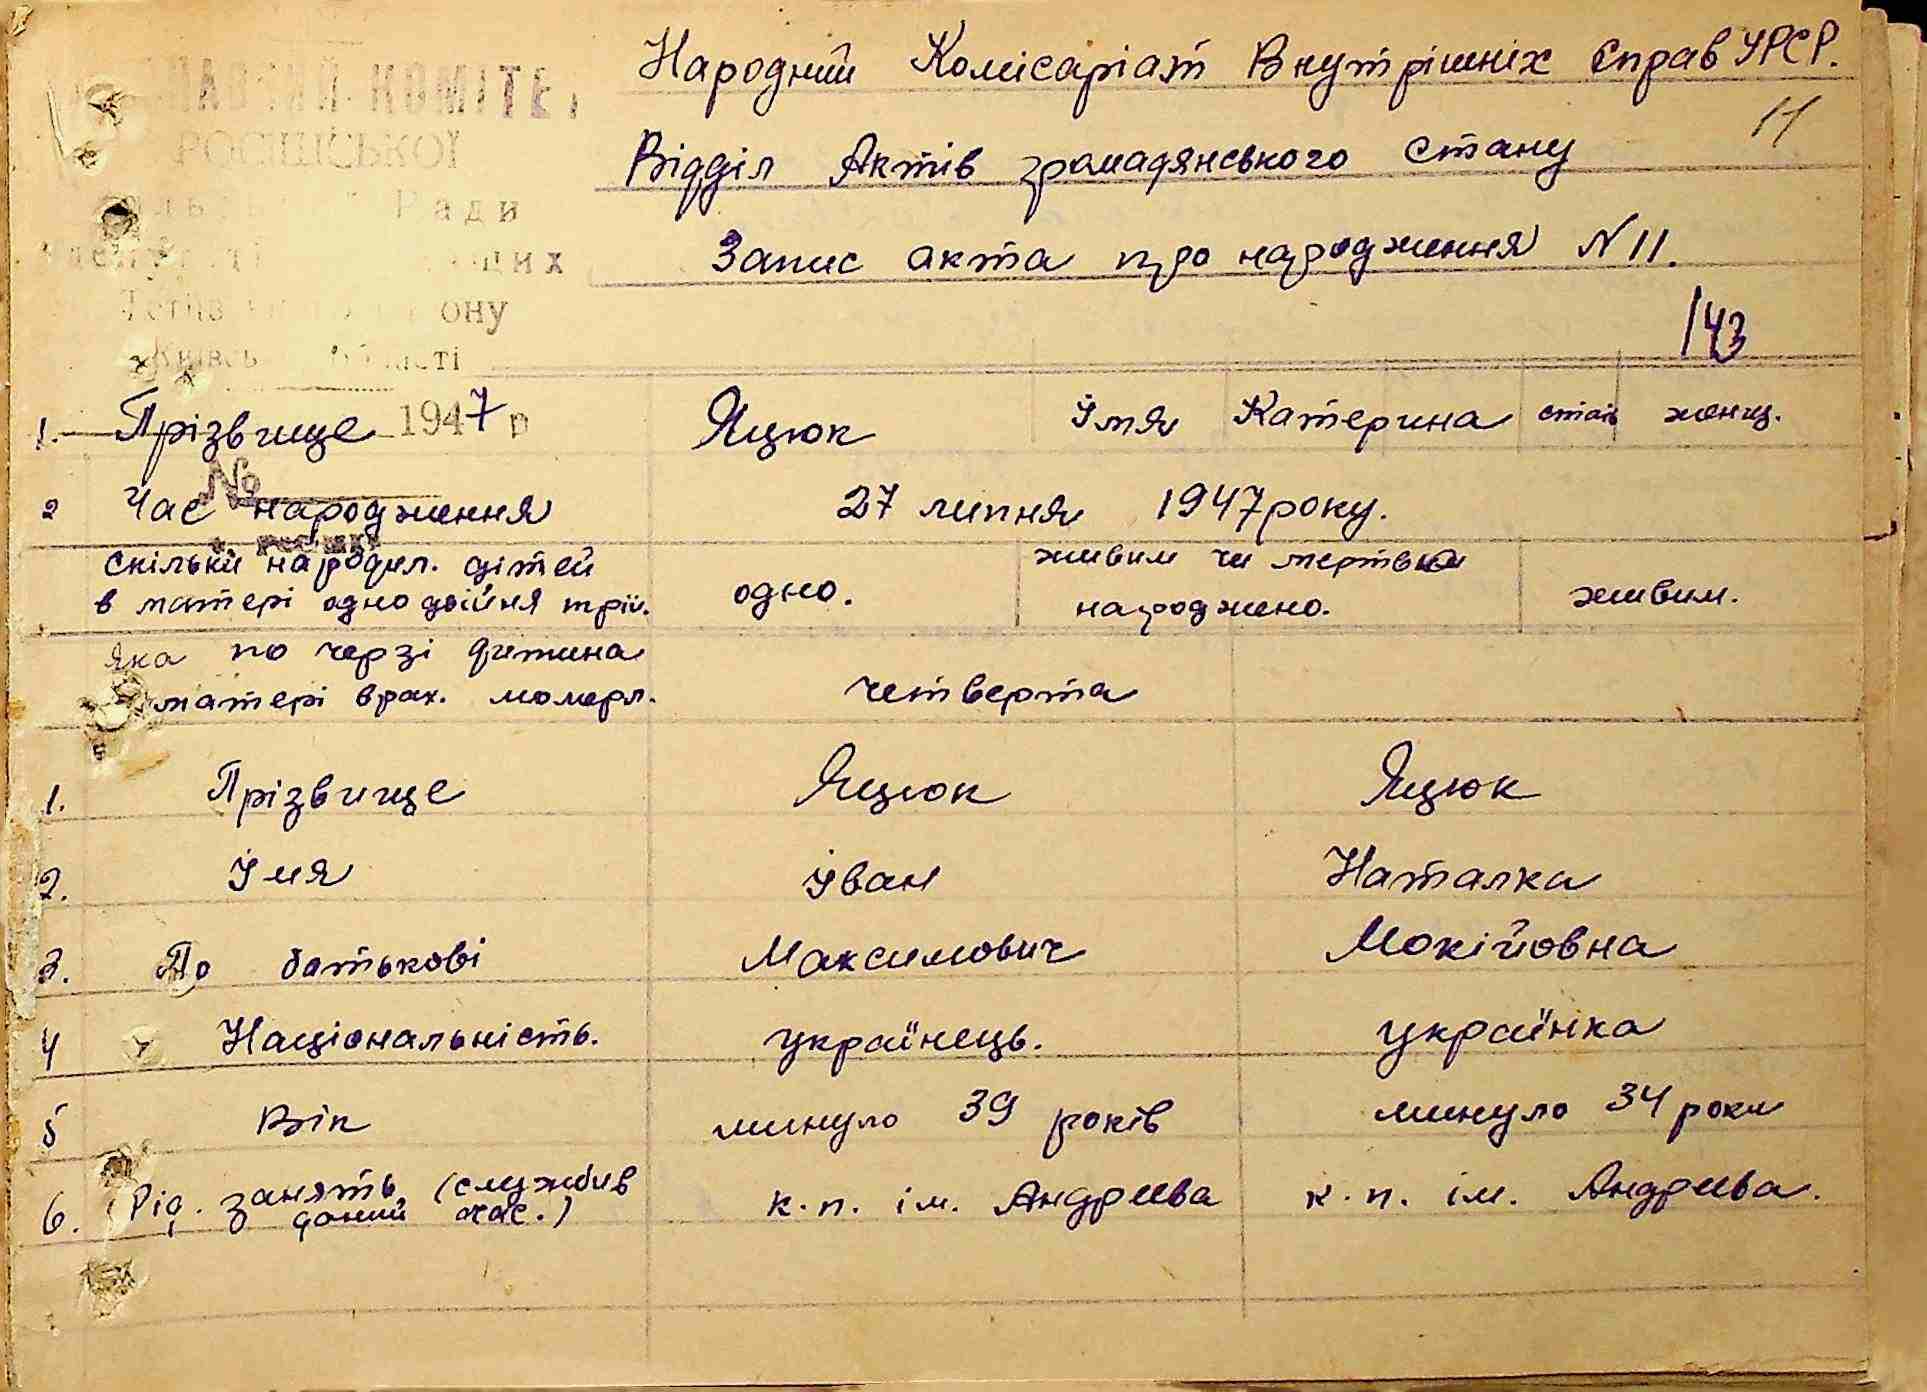 Народний Комісаріат Внутрішніх Справ УРСР.
11
КОМІТЕ
РОСІШСЬКОЇ
Відділ Актів громадянського стану
Ради
Запис акта про народження N 11.
ону
143
1947 р
1. Прізвище Яцюк Імя Катерина стать женщ.
№
2 Час народження 27 липня 1947 року.
скільки народил. дітей в матері одно двійня трій. одно. живим чи мертвим народжено. живим.
яка по черзі дитина матері врах. четверта
1. Прізвище Яцюк Яцюк
2. Імя Іван Наталка
3. По батькові Максимович Мокійовна
4 Національність. українець. українка
5 Вік минуло 39 років минуло 34 роки
6. Рід. занять (службив даний час.) к.п. ім. Андреева к.п. ім. Андреева.